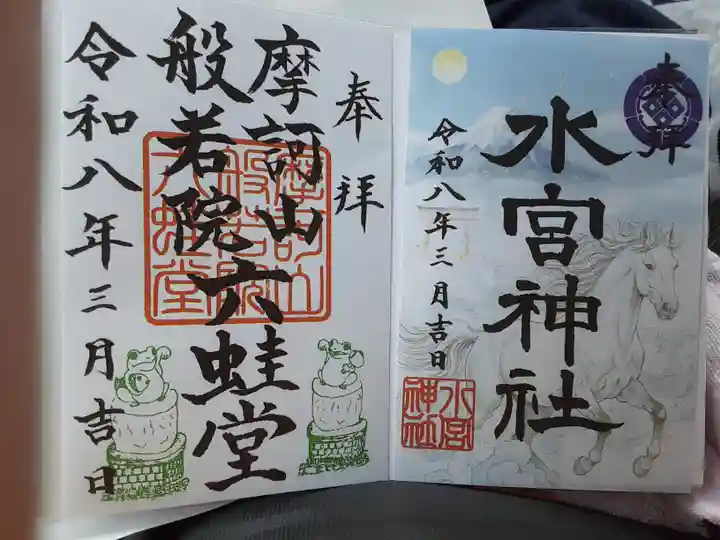 奉拝
水宮神社
令和八年三月吉日
水宮神社
奉拝
摩訶山
般若院六蛙堂
令和八年三月吉日
摩訶山
般若院
六蛙堂